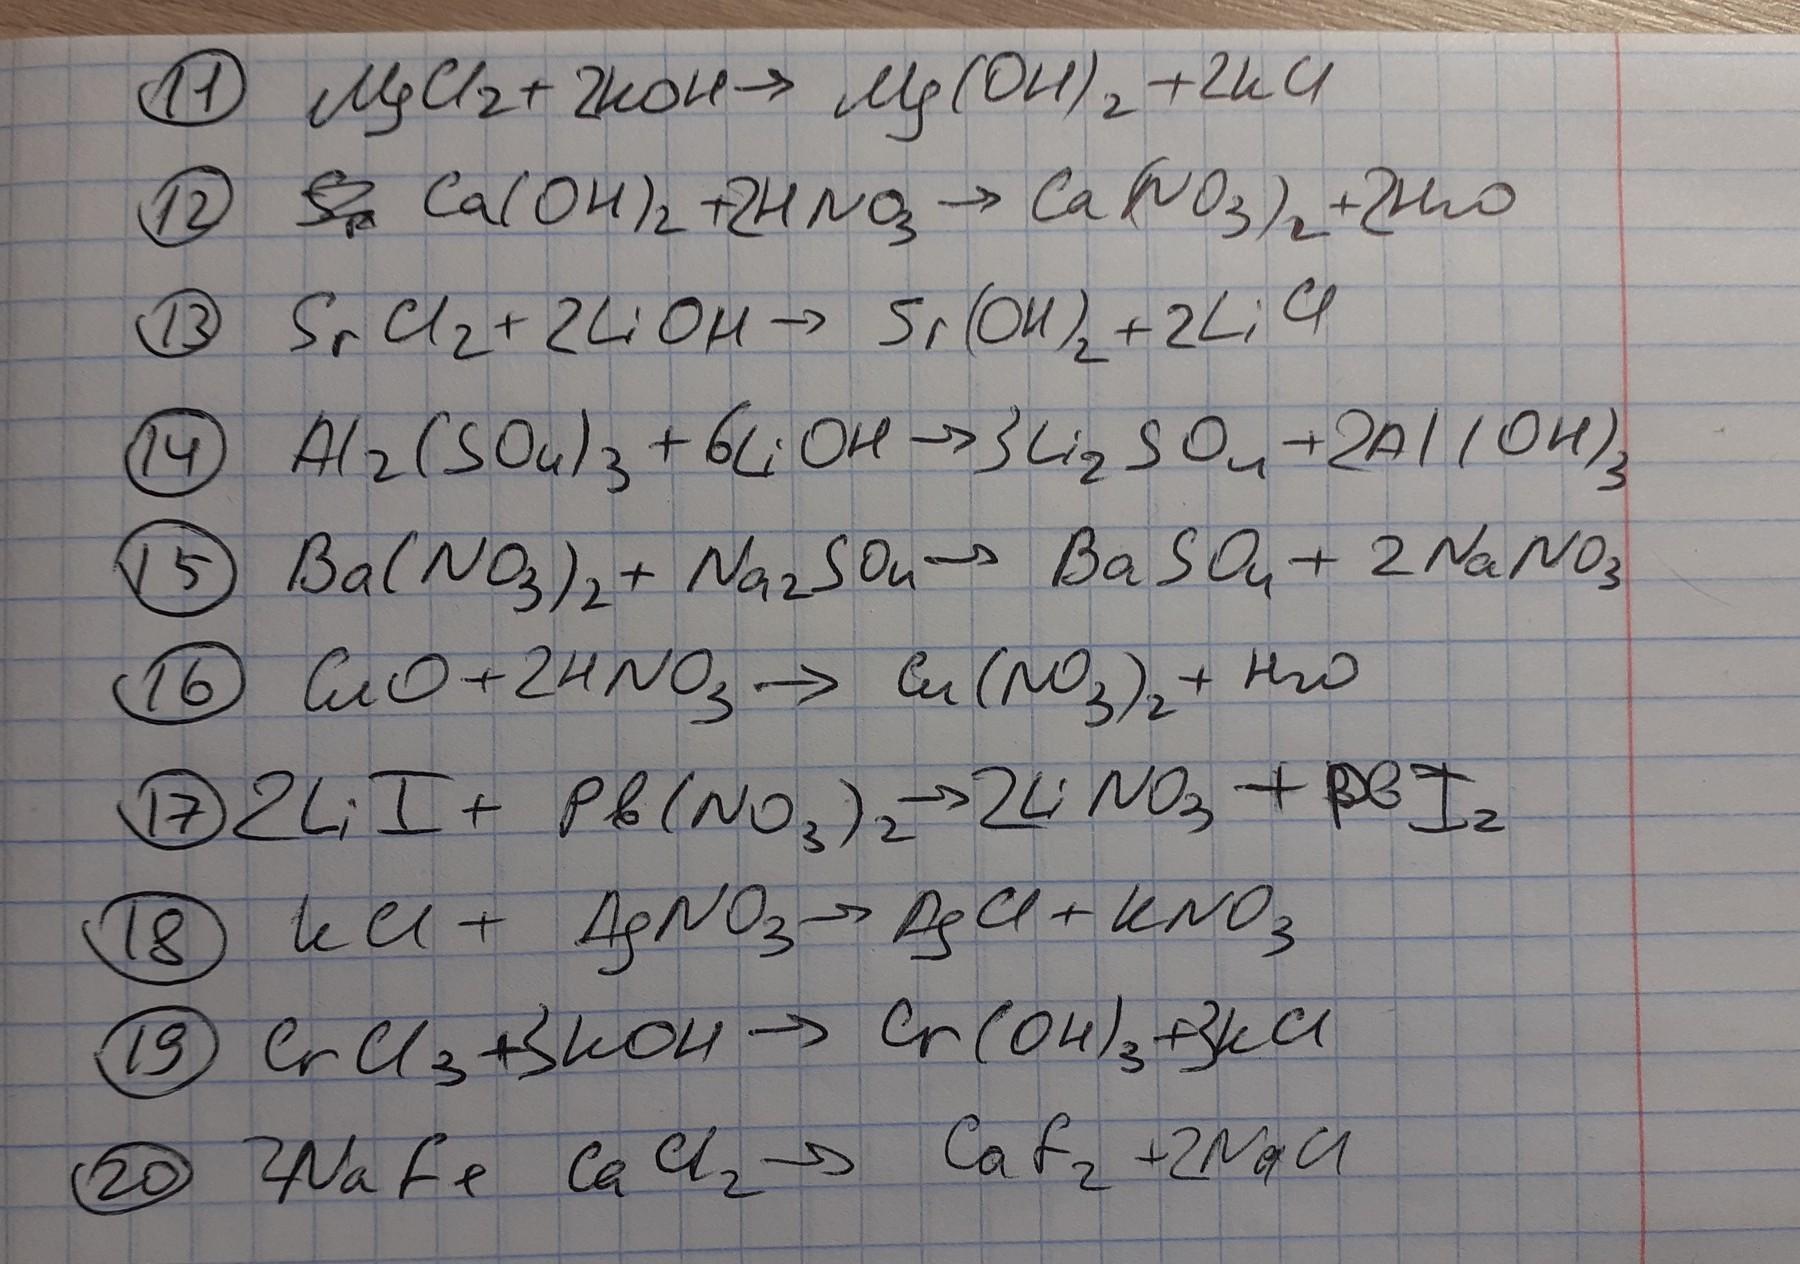 11 MgCl2 + 2KOH → Mg(OH)2 + 2KCl
12 Ca(OH)2 + 2HNO3 → Ca(NO3)2 + 2H2O
13 SrCl2 + 2LiOH → Sr(OH)2 + 2LiCl
14 Al2(SO4)3 + 6LiOH → 3Li2SO4 + 2Al(OH)3
15 Ba(NO3)2 + Na2SO4 → BaSO4 + 2NaNO3
16 CuO + 2HNO3 → Cu(NO3)2 + H2O
17 2LiI + Pb(NO3)2 → 2LiNO3 + PbI2
18 KCl + AgNO3 → AgCl + KNO3
19 CrCl3 + 3KOH → Cr(OH)3 + 3KCl
20 2NaF + CaCl2 → CaF2 + 2NaCl